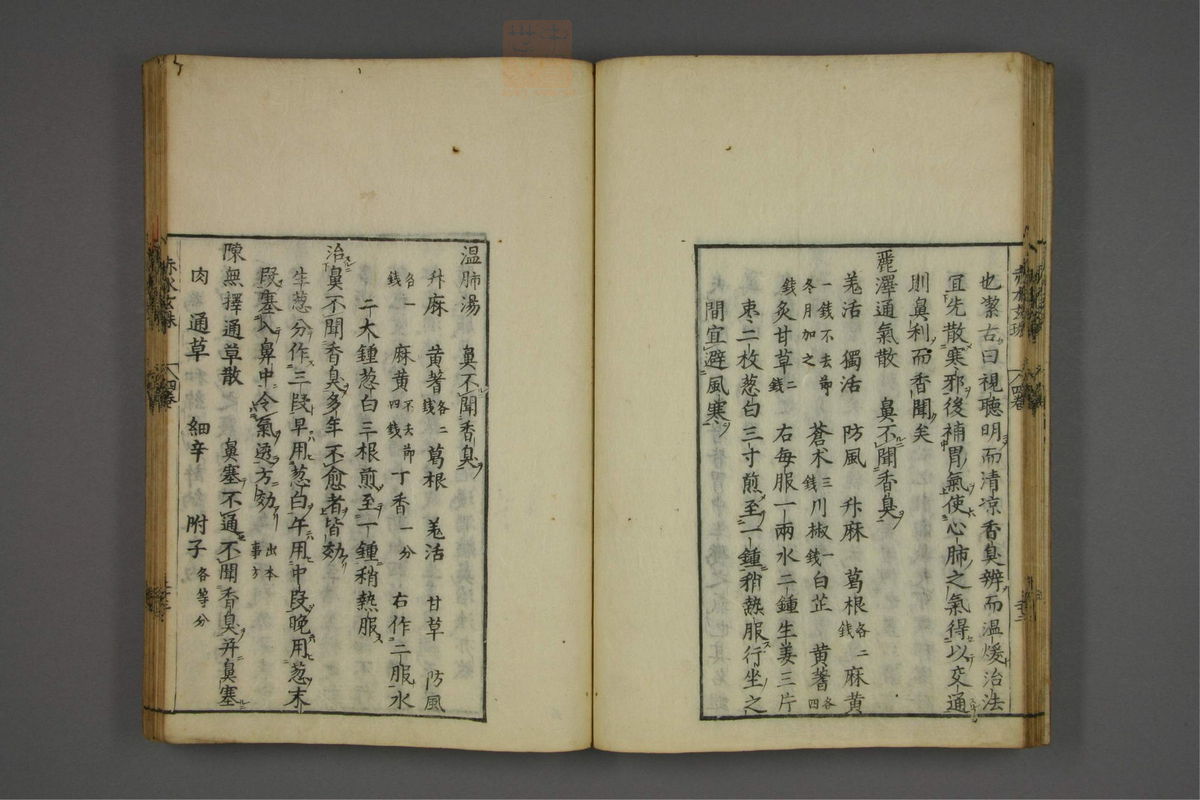 也潔古曰視聽明而清凉香臭辨而温煖治法
宜先散寒邪後補胃氣使心肺之氣得以交通
則鼻利而香聞矣
麗澤通氣散 鼻不聞香臭
羗活 獨活 防風 升麻 葛根各二錢 麻黄
一錢不去節冬月加之 蒼术三錢 川椒一錢 白芷 黄蓍各四
錢 炙甘草二錢 右每服一兩水二鍾生姜三片
枣二枚葱白三寸煎至一鍾稍熱服行坐之
間宜避風寒
温肺湯 鼻不聞香臭
升麻 黄蓍各二錢 葛根 羗活 甘草 防風
各一錢 麻黄不去節四錢 丁香一分 右作二服水
二大鍾葱白三根煎至一鍾稍熱服
治鼻不聞香臭多年不愈者皆効
生葱分作三段早用葱白午用中段晚用葱末
段塞入鼻中令氣透方効 出本事方
陳無擇通草散 鼻塞不通不聞香臭并鼻塞
肉 通草 細辛 附子各等分
赤水玄珠 四卷